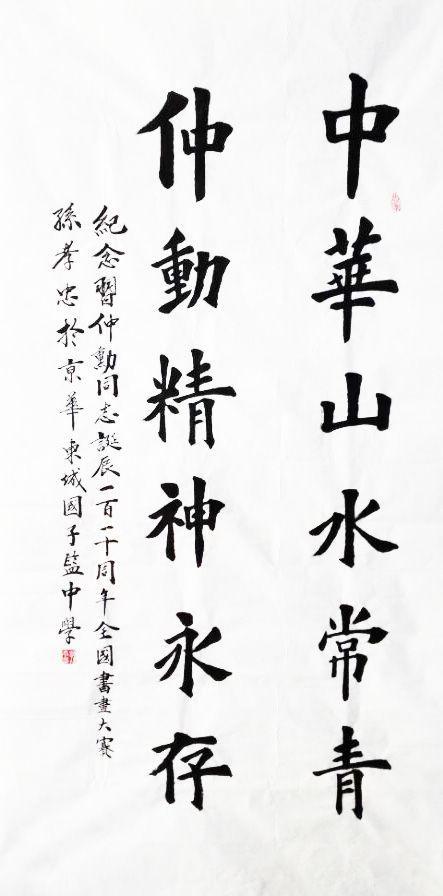 中華山水常青
仲動精神永存
紀念習仲勳同志誕辰一百一十周年全國書畫大賽
孫孝忠於京華東城國子監中學